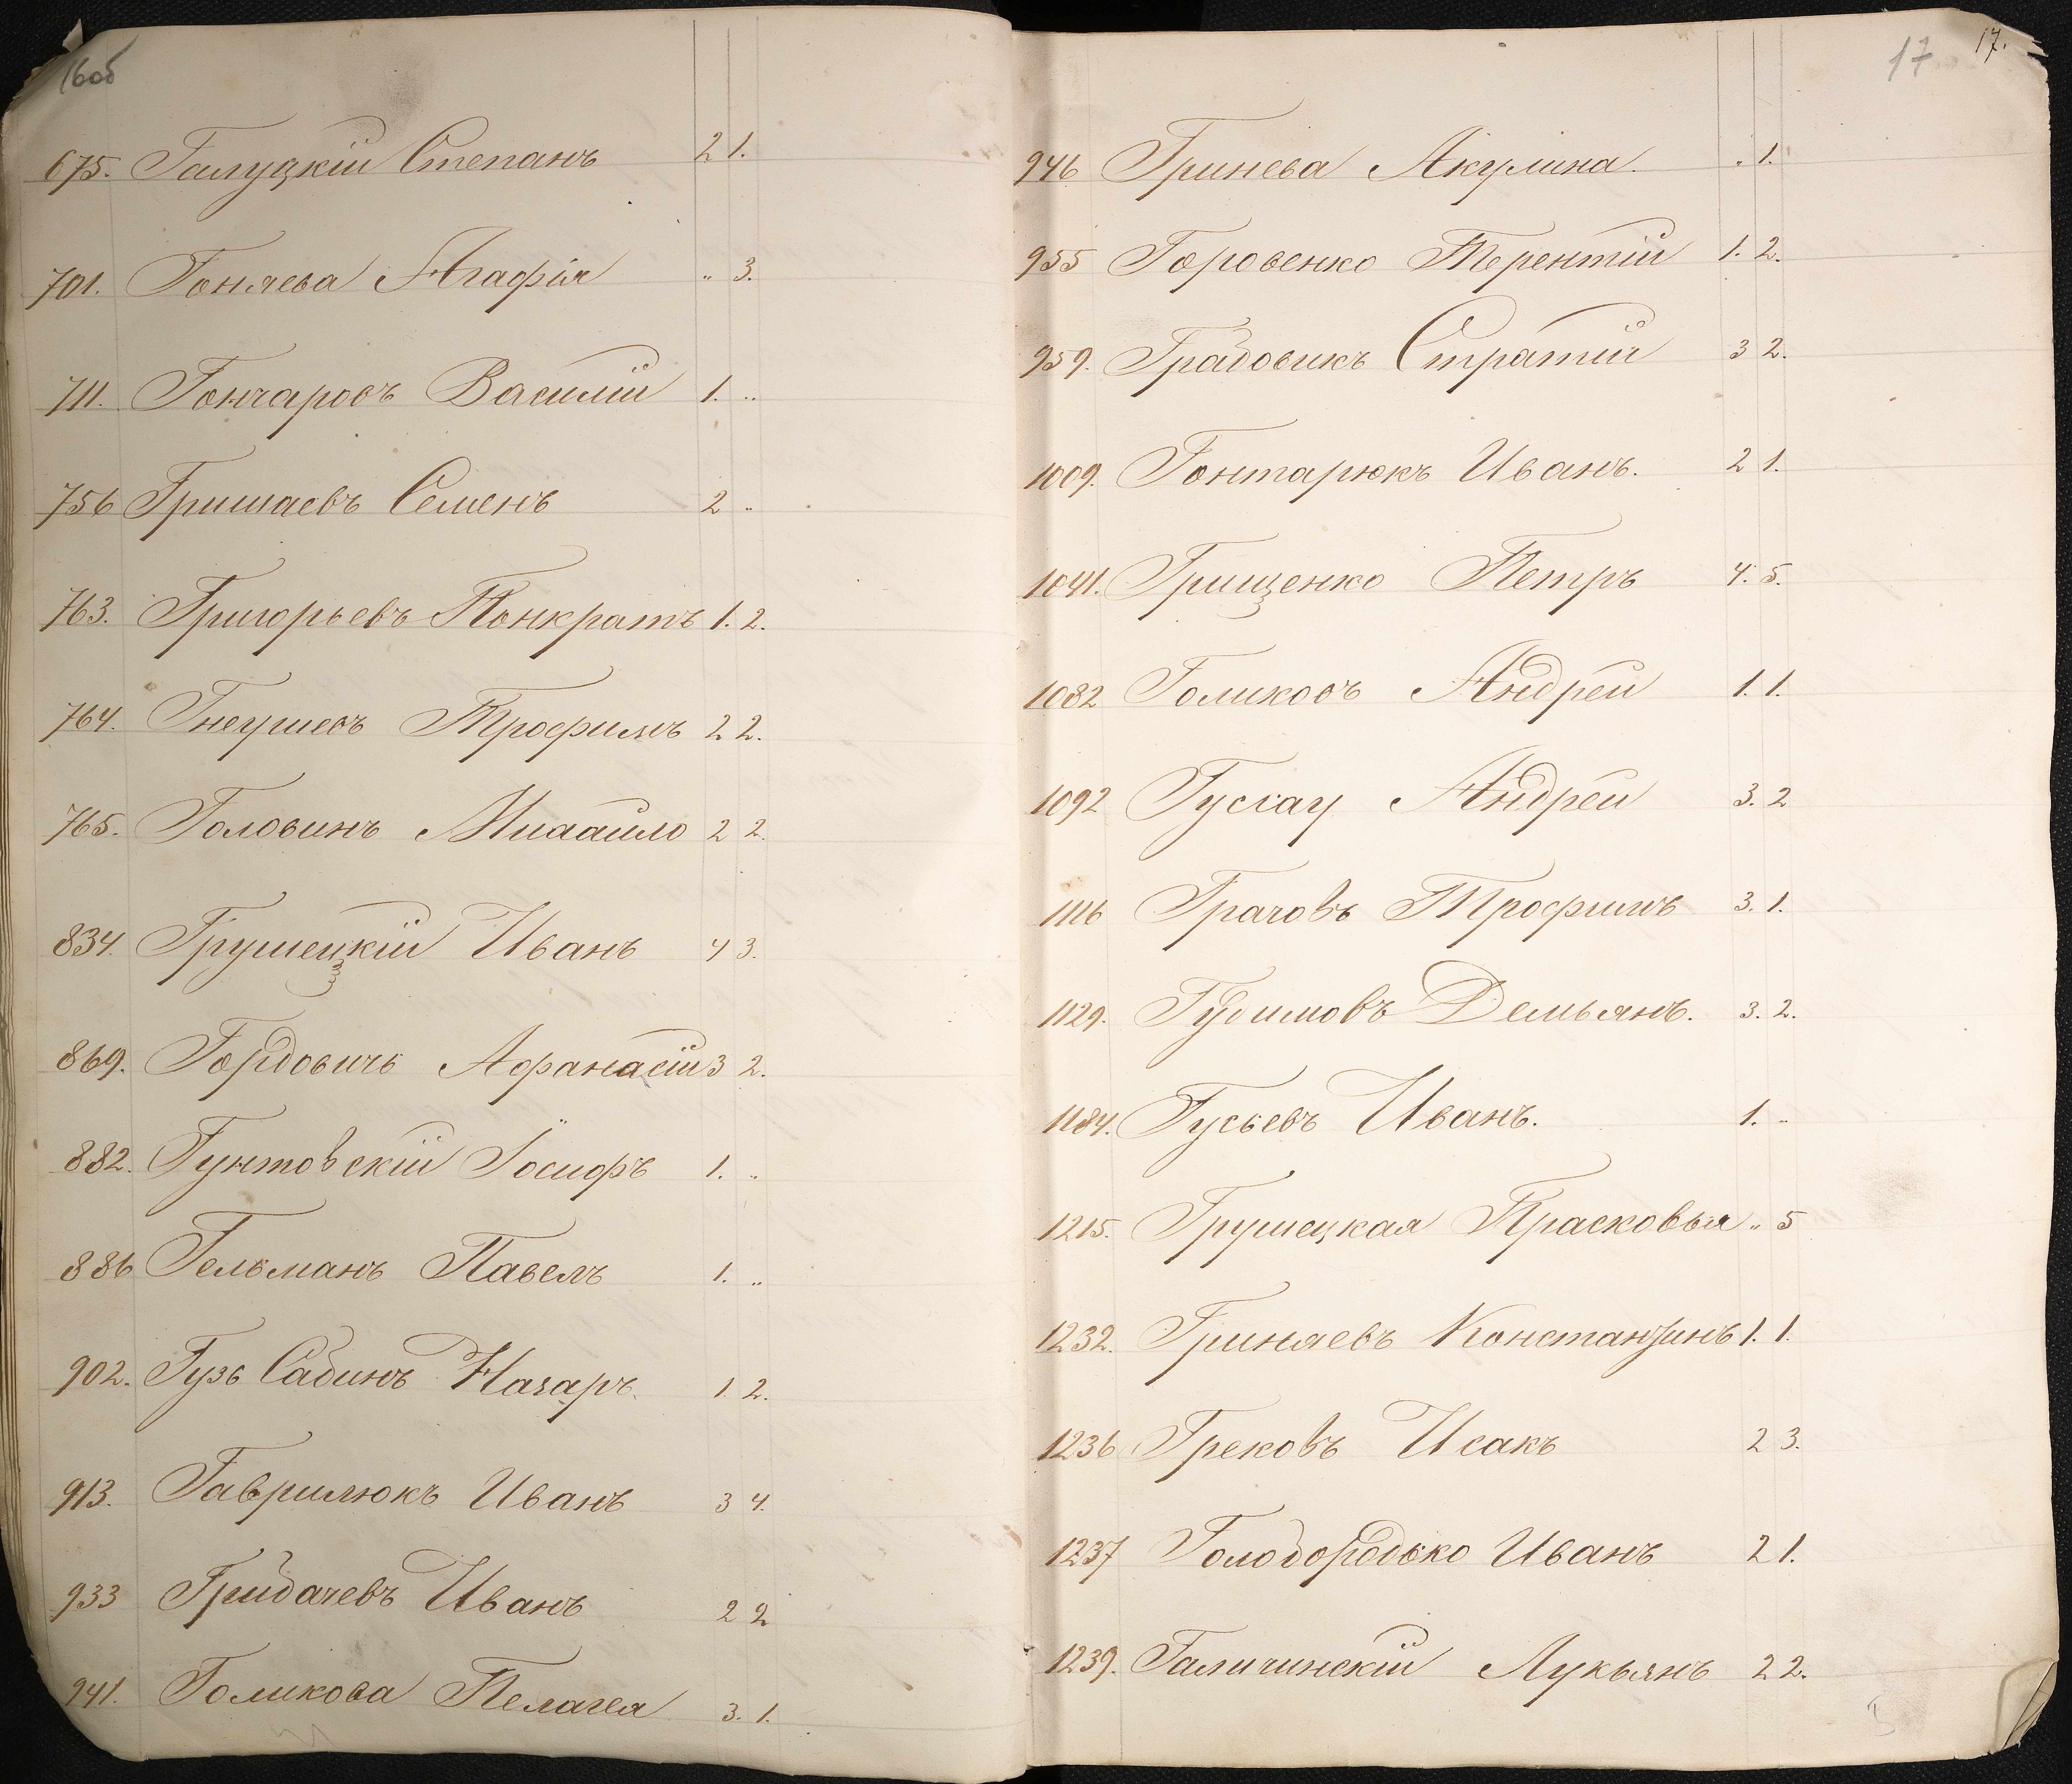 16об
675. Галуцкій Степанъ 2 1.
701. Гоняева Агафія „ 3.
711. Гончаровъ Василій 1. „
756 Гришаевъ Семенъ 2 „
763. Григорьевъ Понкратъ 1. 2.
764. Гнеушевъ Трофимъ 2 2.
765. Головинъ Михайло 2 2.
834. Грушецкій Иванъ 4 3.
869. Гордовичъ Афанасій 3 2.
882. Гунтовскій Іосифъ 1. „
886 Гельманъ Павелъ 1. „
902. Гузь Сабинъ Назаръ 1. 2.
913. Гаврилюкъ Иванъ 3 4.
933 Гридачевъ Иванъ 2 2
941. Голикова Пелагея 3. 1.
17 17.
946 Гринева Акулина. „ 1.
955 Горовенко Терентій 1. 2.
959. Градовикъ Стратій 3 2.
1009. Гонтарюкъ Иванъ. 2 1.
1041. Грищенко Петръ 4. 5.
1082 Голиковъ Андрей 1. 1.
1092 Гускау Андрей 3. 2
1116 Грачовъ Трофимъ 3. 1.
1129. Гудимовъ Демьянъ. 3. 2.
1184. Гусьевъ Иванъ. 1. „
1215. Грушецкая Прасковья „ 5
1232. Гриняевъ Константинъ 1. 1.
1236 Грековъ Исакъ 2 3.
1237 Голобородько Иванъ 2 1.
1239. Галичинскій Лукьянъ 2 2.